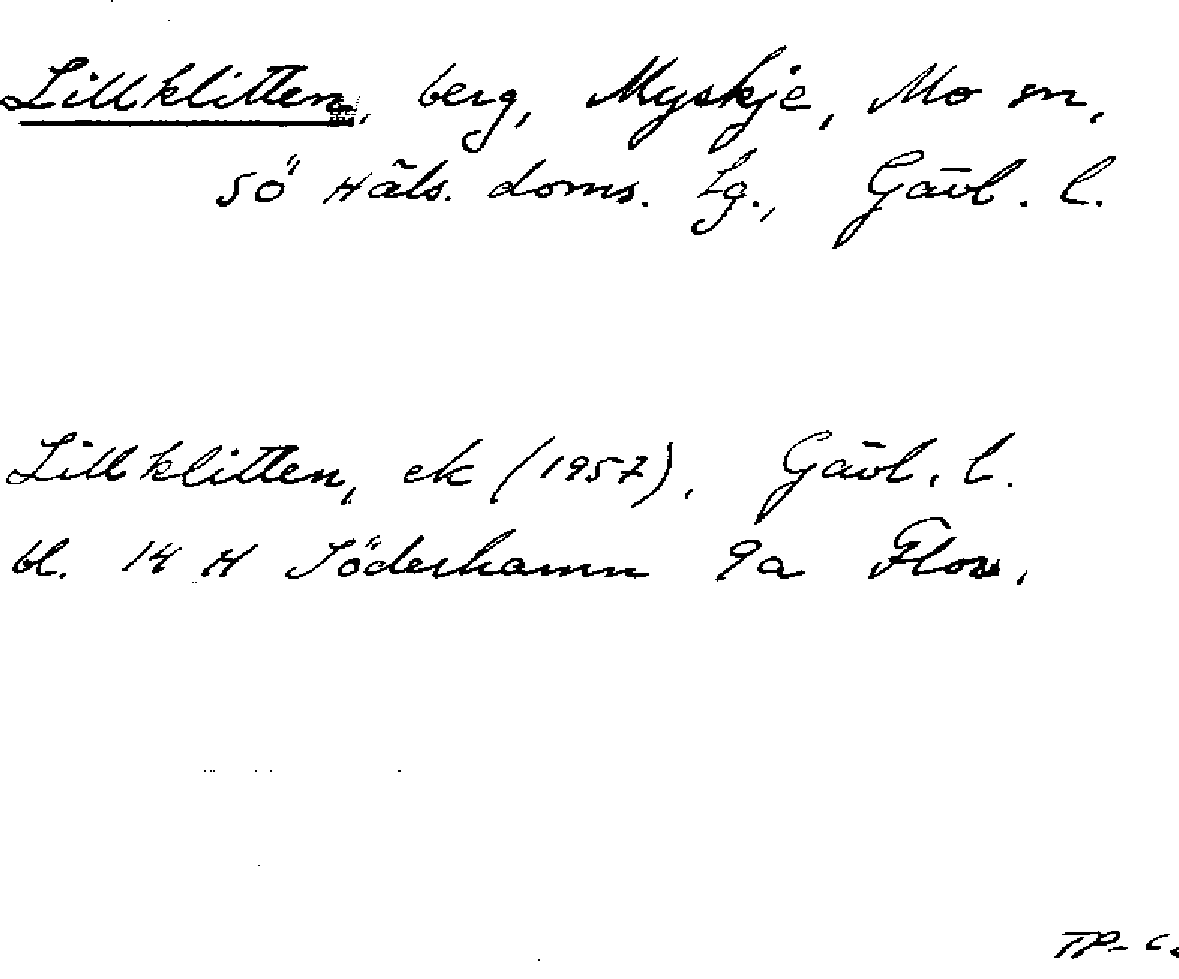 Lillklitten, berg, Myskje, Mo sn,
sö Häls. doms. lg., Gävl. l.
Lillklitten, ek (1957), Gävl. l.
bl. 14 H Söderhamn 9a Flor,